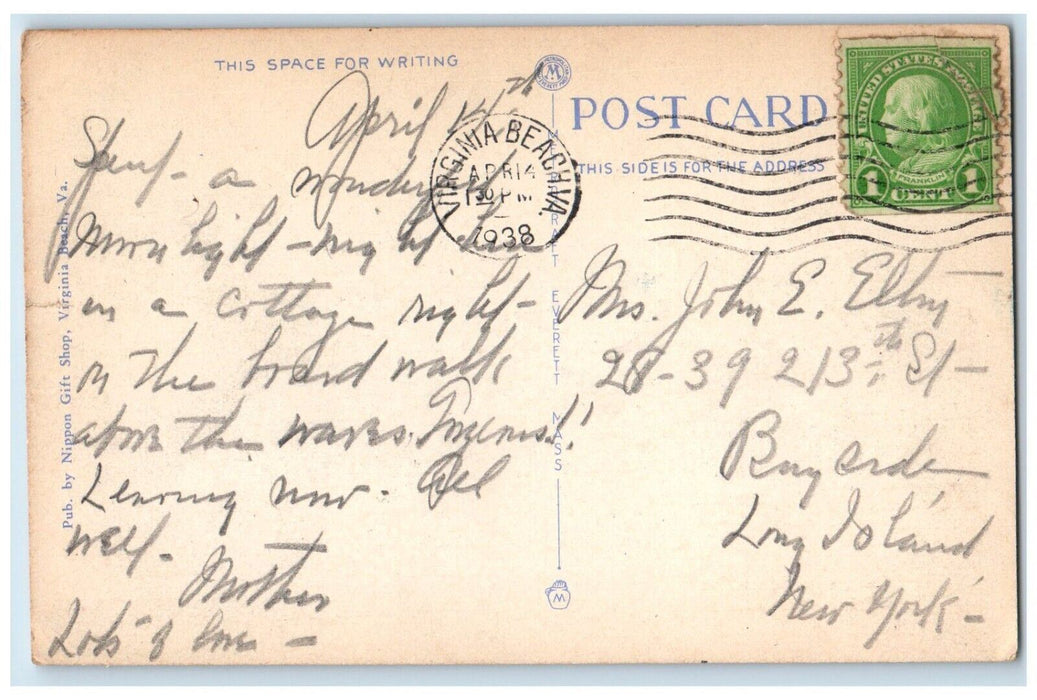 THIS SPACE FOR WRITING
April 14th
Spent - a wonderful
Moonlight - night here
in a cottage right -
on the board walk
above the waves.
Leaving now. All
well -
Mother
Lots of love -
Pub. by Nippon Gift Shop, Virginia Beach, Va.
EVERETT MASS
VIRGINIA BEACH VA.
APR 14
PM
1938
POST CARD
THIS SIDE IS FOR THE ADDRESS
UNITED STATES POSTAGE
FRANKLIN
1 CENT 1
Mrs. John E.
28-39 213th St -
Bayside
Long Island
New York -